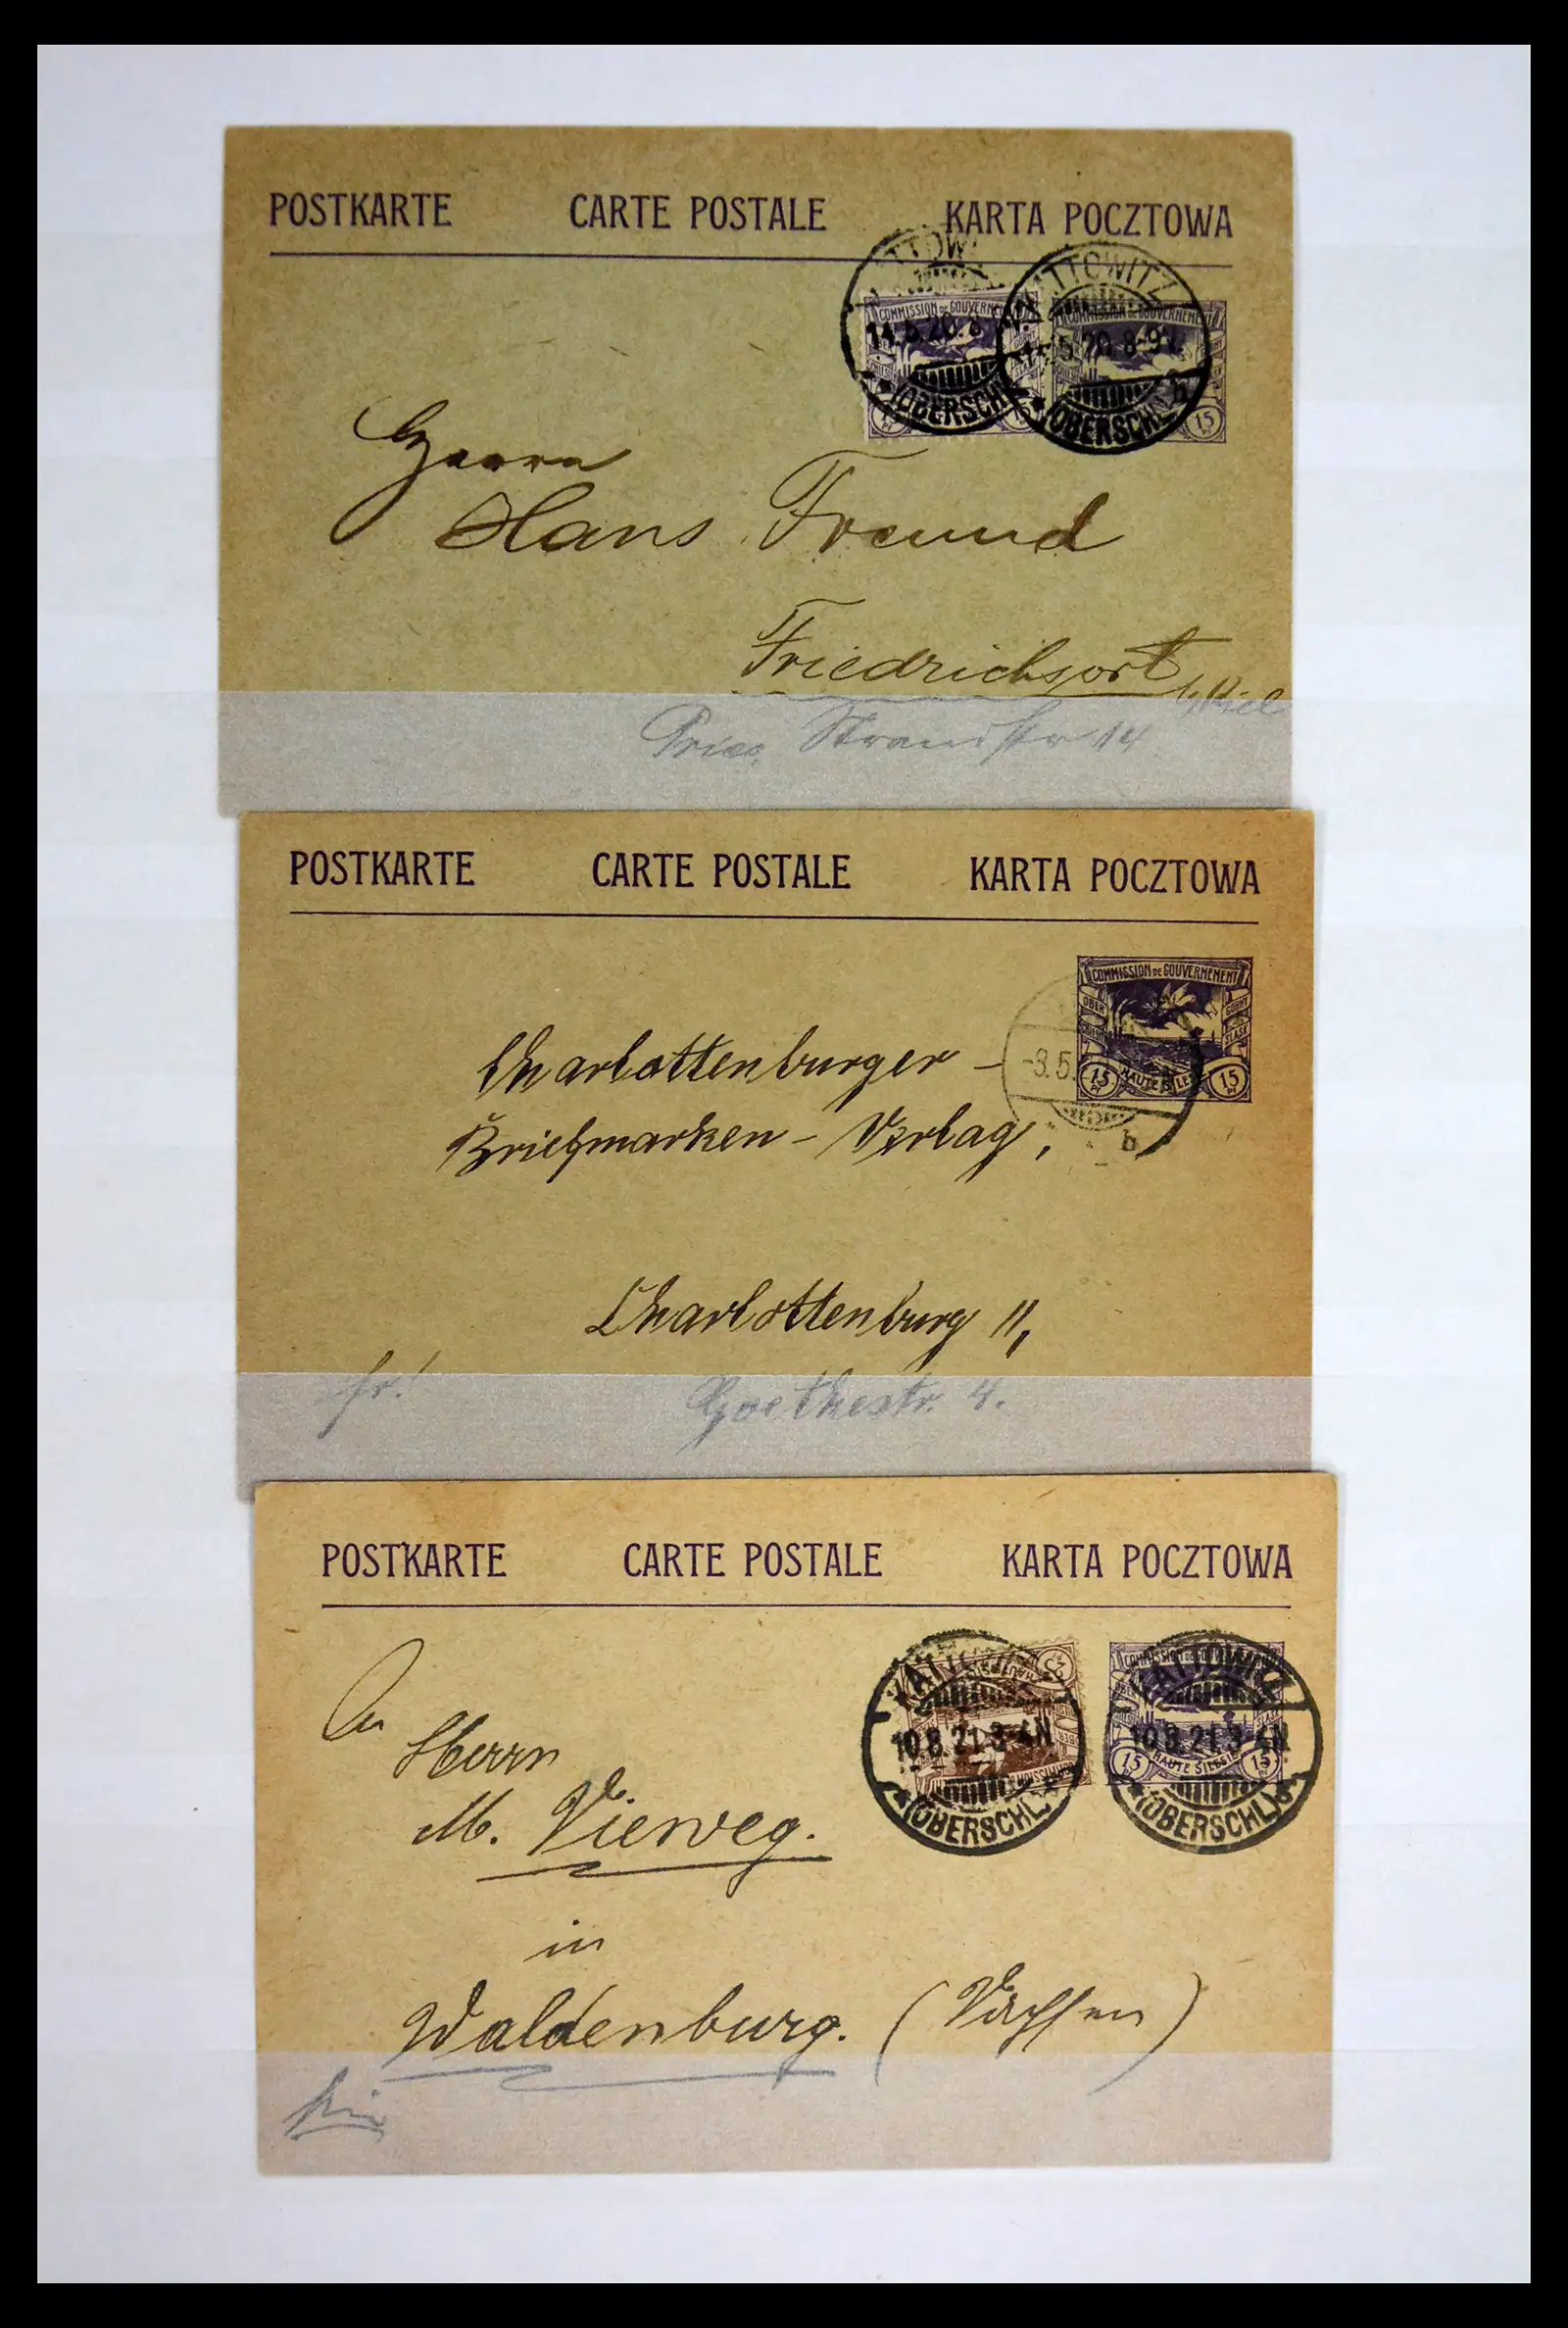 POSTKARTE CARTE POSTALE KARTA POCZTOWA
KATTOWITZ
COMMISSION DE GOUVERNEMENT COMMISSION DE GOUVERNEMENT
14.5.20.8 5.20.8-9V.
(OBERSCHL) (OBERSCHL) b
15 15
Herrn
Hans Freund
Friedrichsort
b/Kiel
Pries, Strandstr 14
POSTKARTE CARTE POSTALE KARTA POCZTOWA
COMMISSION DE GOUVERNEMENT
OBER GÓRNY
SCHLESIEN ŚLĄSK
-3.5.
15 PF HAUTE SILESIE 15 PF
b
Charlottenburger-
Briefmarken-Verlag,
Charlottenburg II,
fr! Goethestr. 4.
POSTKARTE CARTE POSTALE KARTA POCZTOWA
25
COMMISSION DE GOUVERNEMENT
KATTOWITZ KATTOWITZ
10.8.21.3-4N 10.8.21.3-4N
15 HAUTE SILESIE 15
*(OBERSCHL)* *(OBERSCHL)
An
Herrn
M. Vieweg.
in
Waldenburg. (Sachsen)